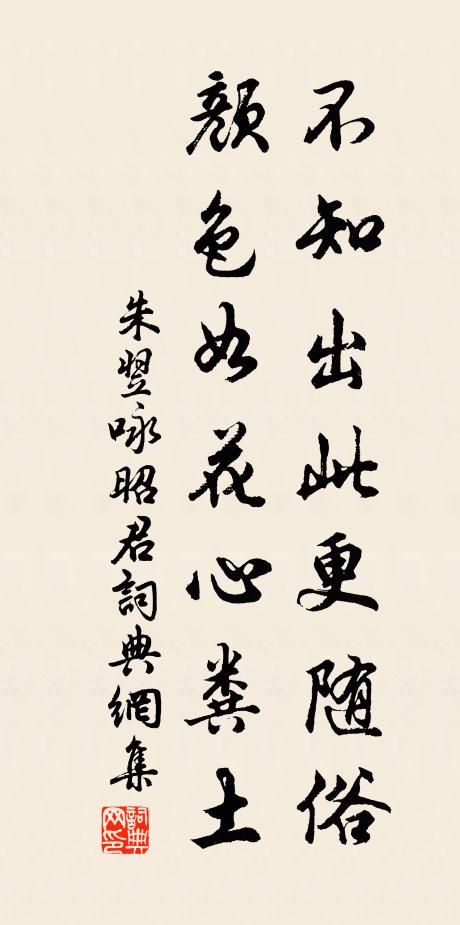 不知出此更随俗
颜色如花心粪土
朱翌咏昭君詞典網集
詞典网印